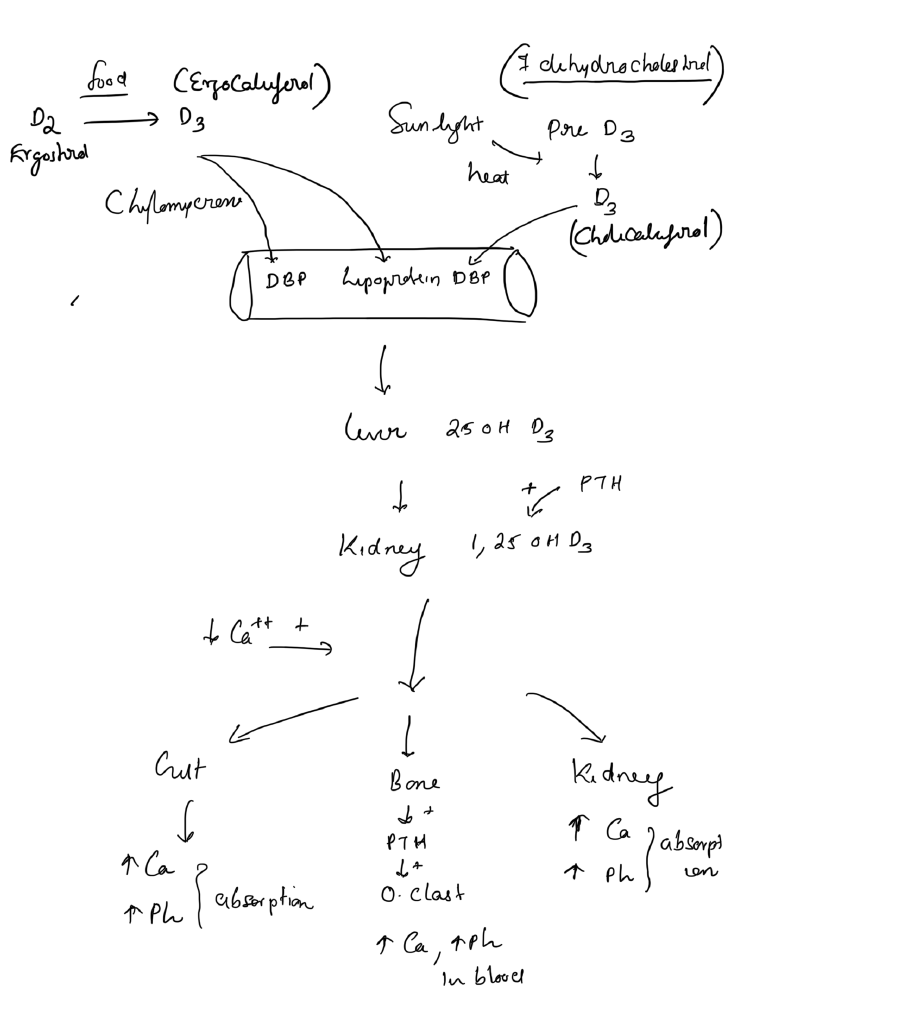 food (Ergocalciferol)
D2 D3
Ergosterol
(7 dehydrocholesterol)
Sunlight Pre D3
heat
D3
(Cholecalciferol)
Chylomicrons
DBP Lipoprotein DBP
Liver 25 OH D3
+ PTH
Kidney 1, 25 OH D3
↓ Ca++ +
Gut Bone Kidney
↓ +
PTH
↓ +
O. Clast
↑ Ca
↑ Ph } absorption
↑ Ca, ↑ Ph
In blood
↑ Ca
↑ Ph } absorpt
ion